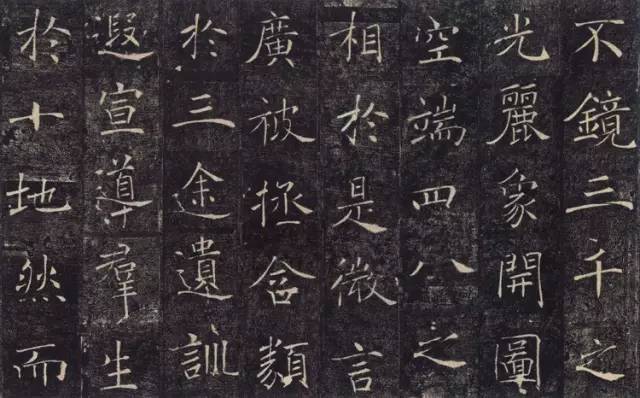 不鏡三千之
光麗象開圖
空端四八之
相於是微言
廣被拯含類
於三途遺訓
遐宣導群生
於十地然而